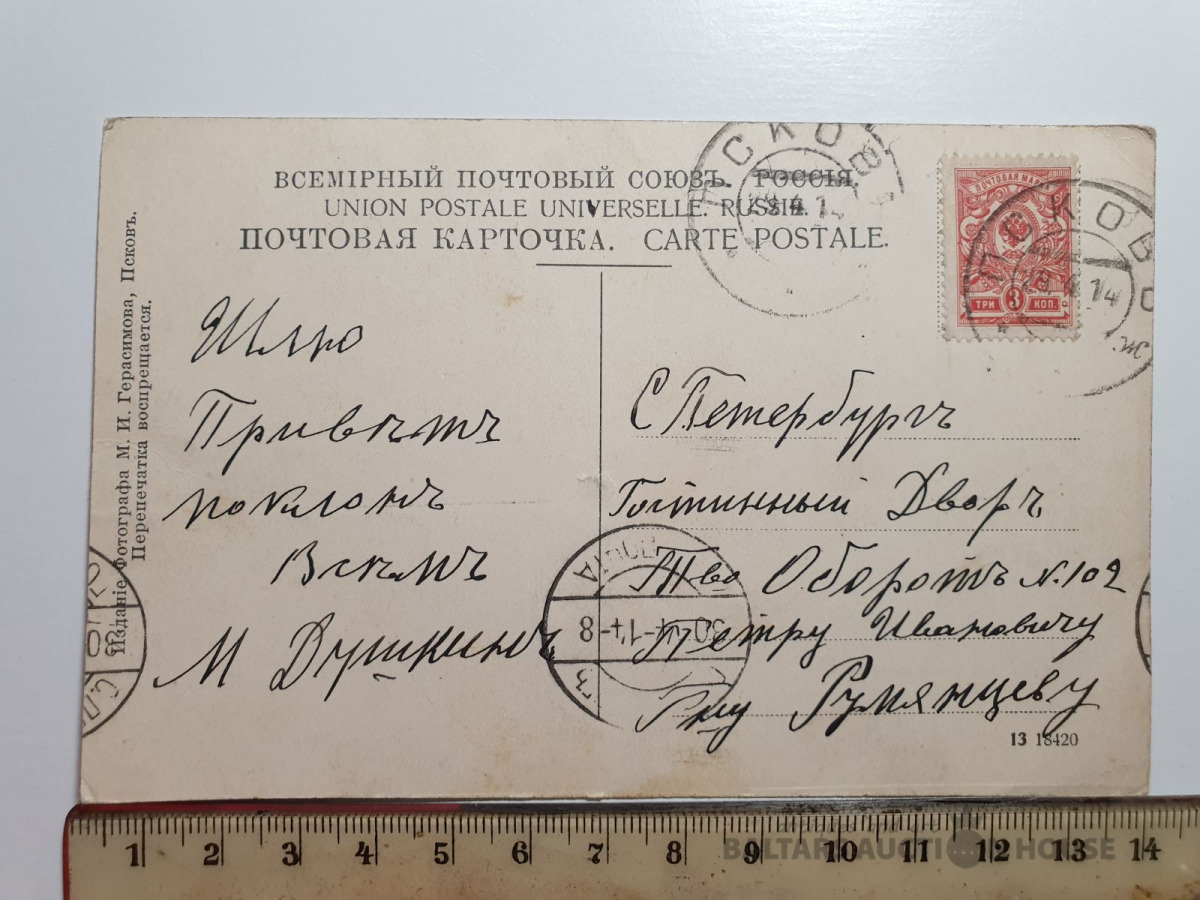 ВСЕМІРНЫЙ ПОЧТОВЫЙ СОЮЗЪ. РОССІЯ.
UNION POSTALE UNIVERSELLE. RUSSIE.
ПОЧТОВАЯ КАРТОЧКА. CARTE POSTALE.
ПСКОВЪ
ПОЧТОВАЯ МАРКА
ТРИ 3 КОП.
ПСКОВЪ
29 4 14
Изданіе Фотографа М. И. Герасимова, Псковъ.
Перепечатка воспрещается.
Шлю
Привѣтъ
поклонъ
Всѣмъ
М Душкинъ
С Петербургъ
Гостинный Дворъ
Тво Оборотъ N. 102
Петру Ивановичу
Румянцеву
ПОЧТА
30-4-14-8
13 18420
1 2 3 4 5 6 7 8 9 10 11 12 13 14
BALTARI AUCTION HOUSE